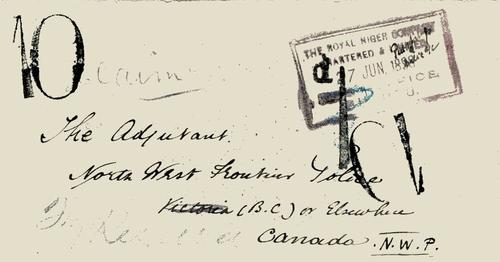 10
THE ROYAL NIGER COMPANY
CHARTERED & LIMITED
7 JUN. 189
d
1
The Adjutant.
North West Frontier Police
Victoria (B.C.) or Elsewhere
Canada. N.W.P.